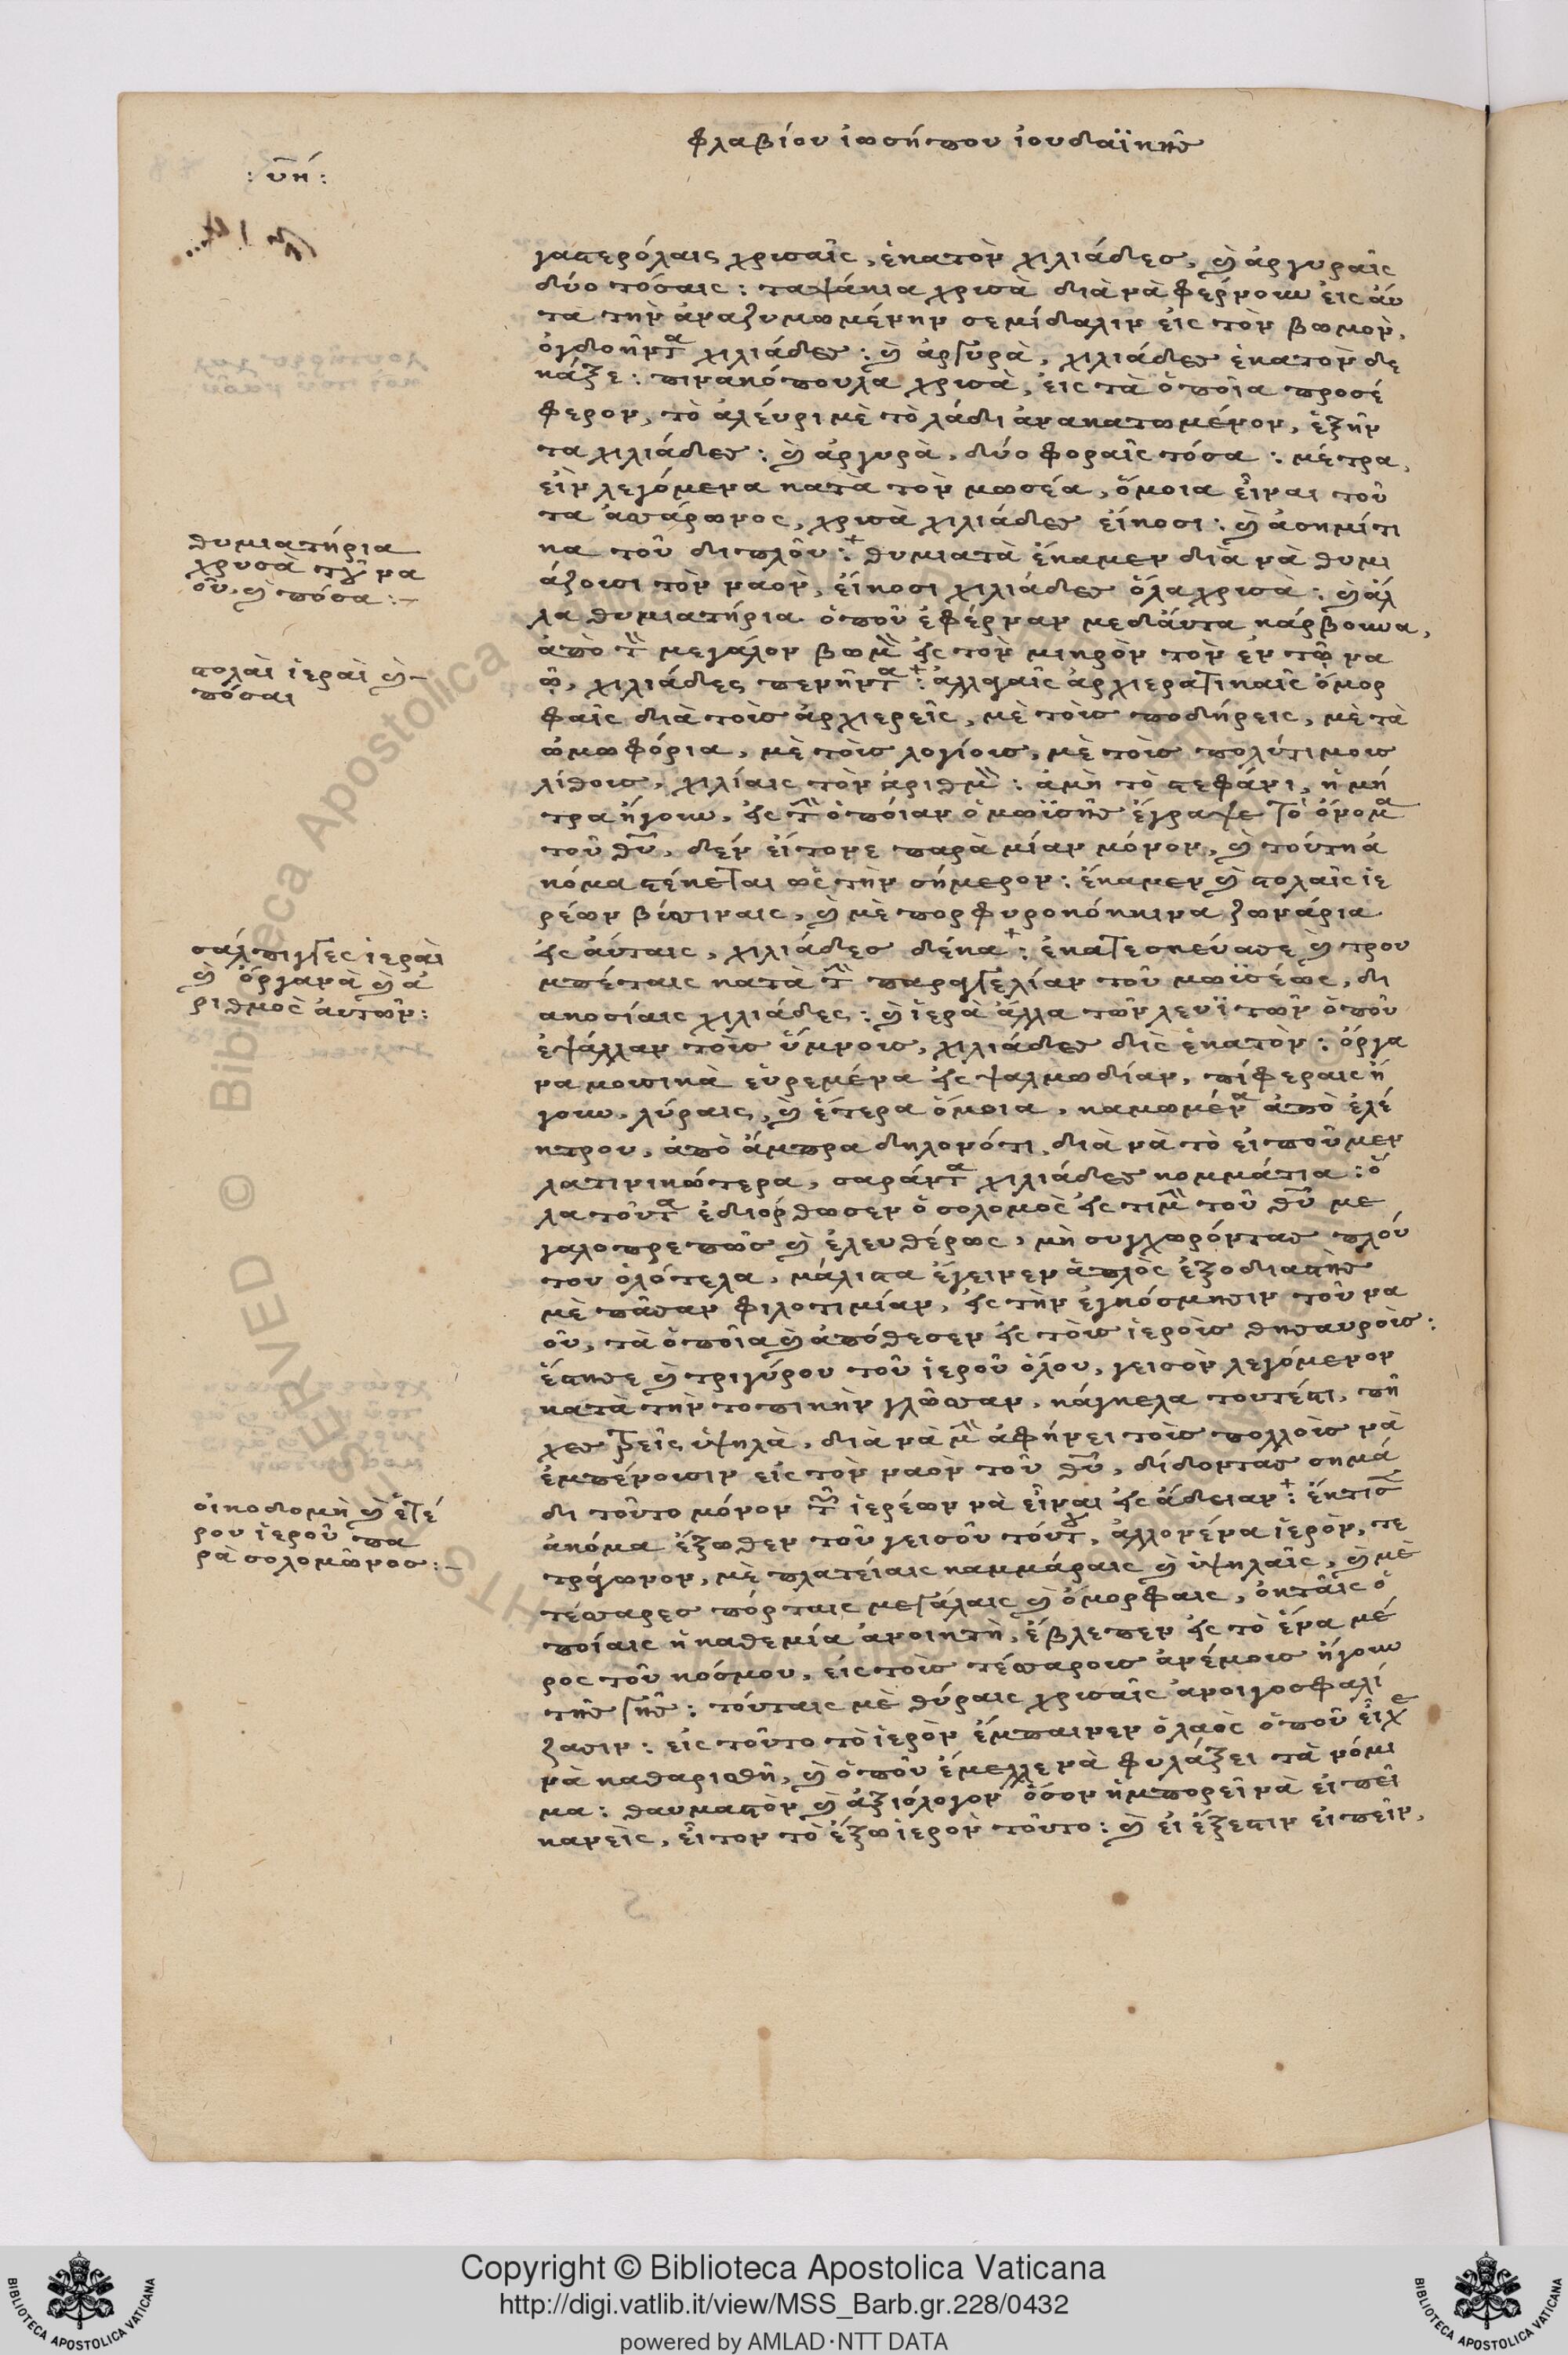 φλαβίου ἰωσήπου ἰουδαϊκῆς
: υη :
γαστερόλαις χρισαῖς, ἑκατὸν χιλιάδες, καὶ ἀργυραῖς
δύο τόσαις : ταψάκια χρισὰ διὰ νὰ φέρνουν εἰς ἀυ
τα τὴν ἀναζυμωμένην σεμίδαλιν εἰς τὸν βωμὸν,
ὀγδοῆντα χιλιάδες : καὶ ἀργυρὰ, χιλιάδες ἑκατὸν δε
κάξε : πινακόπουλα χρισὰ, εἰς τὰ ὁποῖα προσέ
φερον, τὸ ἀλέυρι μὲ τὸ λάδι ἀνακατωμένον, ἑξῆν
τα χιλιάδες : καὶ ἀργυρὰ, δύο φοραῖς τόσα : μέτρα,
εἲν λεγόμενα κατὰ τὸν μωσέα, ὅμοια εἶναι τοῦ
τα ἀσσάρωνος, χρισὰ χιλιάδες εἴκοσι : καὶ ἀσημίτι
κα τοῦ διπλοῦ : θυμιατὰ ἔκαμεν διὰ νὰ θυμι
άζουσι τὸν ναὸν, εἴκοσι χιλιάδες ὅλα χρισὰ : καὶ ἄλ
λα θυμιατήρια ὁποῦ ἐφέρναν μεδάυτα κάρβουνα,
ἀπὸ τὸν μεγάλον βωμὸν εἰς τὸν μικρὸν τὸν ἐν τῷ να
ῷ, χιλιάδες πενῆντα : ἀλλαγαῖς ἀρχιερατικαῖς ὄμορ
φαῖς διὰ τοὺς ἀρχιερεῖς, μὲ τοὺς ποδήρεις, μὲ τὰ
ὠμωφόρια, μὲ τοὺς λογίους, μὲ τοὺς πολύτιμους
λίθους, χιλίαις τὸν ἀριθμὸν : ἀμὴ τὸ στεφάνι, ἡ μή
τρα ἤγουν, εἰς τὴν ὁποίαν ὁ μωϋσῆς ἔγραψε τὸ ὄνομα
τοῦ θῦ, δὲν εἴτονε παρὰ μίαν μόνον, καὶ τούτη ἀ
κόμα στέκεται ὡς τὴν σήμερον : ἔκαμεν καὶ στολαῖς ἱε
ρέων βίσσιναις, καὶ μὲ πορφυροκόκκινα ζωνάρια
εἰς ἀύταις, χιλιάδες δέκα : ἐκατεσκεύασε καὶ τρου
μπέταις κατὰ τὴν παραγγελίαν τοῦ μωϋσέως, δι
ακοσίαις χιλιάδες : καὶ ἱερὰ ἄλλα τῶν λευϊτῶν ὁποῦ
ἐψάλλαν τοὺς ὕμνους, χιλιάδες δὶς ἑκατὸν : ὄργα
να μουσικὰ εὑρεμένα εἰς ψαλμωδίαν, πίφεραις ἤ
γουν, λύραις, καὶ ἕτερα ὅμοια, καμωμένα ἀπὸ ἐλέ
κτρου, ἀπὸ ἄμπρα δηλονότι, διὰ νὰ τὸ εἰποῦμεν
λατινικώτερα, σαράντα χιλιάδες κομμάτια : ὅ
λα τοῦτα ἐδιόρθωσεν ὁ σολομὸς εἰς τιμὴν τοῦ θῦ με
γαλοπρεπῶς καὶ ἐλευθέρως, μὴ συγχωρόντας πλού
του ὁλότελα, μάλιστα ἔγεινεν ἁπλὸς ἐξοδιαστὴς
μὲ πᾶσαν φιλοτιμίαν, εἰς τὴν ἐγκόσμησιν τοῦ να
οῦ, τὰ ὁποῖα καὶ ἀπόθεσεν εἰς τοὺς ἱεροὺς θησαυροὺς :
ἔστησε καὶ τριγύρου τοῦ ἱεροῦ ὅλου, γεισὸν λεγόμενον
κατὰ τὴν τοπικὴν γλῶσσαν, κάγκελα τουτέστι, πῆ
χες τρεῖς ὑψηλὰ, διὰ νὰ μὴν ἀφήνει τοὺς πολλοὺς νὰ
ἐμπένουσιν εἰς τὸν ναὸν τοῦ θῦ, δίδοντας σημά
δι τοῦτο μόνον τῶν ἱερέων νὰ εἶναι εἰς ἄδειαν : ἔκτισε
ἀκόμα ἔξωθεν τοῦ γεισοῦ τούτου, ἄλλον ἕνα ἱερὸν, τε
τράγωνον, μὲ πλατείαις καμμάραις καὶ ὑψηλαῖς, καὶ μὲ
τέσσαρες πόρταις μεγάλαις καὶ ὄμορφαις, ὀκταῖς ὁ
ποίαις ἡ καθεμία ἀνοικτὴ, ἔβλεπεν εἰς τὸ ἕνα μέ
ρος τοῦ κόσμου, εἰς τοὺς τέσσαρους ἀνέμους ἤγουν
τῆς γῆς : τούταις μὲ θύραις χρισαῖς ἀνοιγοσφαλί
ζασιν : εἰς τοῦτο τὸ ἱερὸν ἔμπαινεν ὁ λαὸς ὁποῦ εἶχε
νὰ καθαρισθῆ, καὶ ὁποῦ ἔμελλε νὰ φυλάξει τὰ νόμι
μα : θαυμαστὸν καὶ ἀξιόλογον ὅσον ἠμπορεῖ νὰ εἰπεῖ
κανεὶς, εἶτον τὸ ἔξω ἱερὸν τοῦτο : καὶ εἰ ἔξεστιν εἰπεῖν,
θυμιατήρια
χρυσὰ τοῦ να
οῦ, καὶ πόσα :-
στολαὶ ἱεραὶ καὶ -
πόσαι
σάλπιγγες ἱεραὶ
καὶ ὄργανὰ καὶ ἀ
ριθμὸς ἀυτῶν :
οἰκοδομὴ καὶ ἑτέ
ρου ἱεροῦ πα
ρὰ σολομῶνος :-
Copyright © Biblioteca Apostolica Vaticana
http://digi.vatlib.it/view/MSS_Barb.gr.228/0432
powered by AMLAD·NTT DATA
BIBLIOTECA APOSTOLICA VATICANA
BIBLIOTECA APOSTOLICA VATICANA